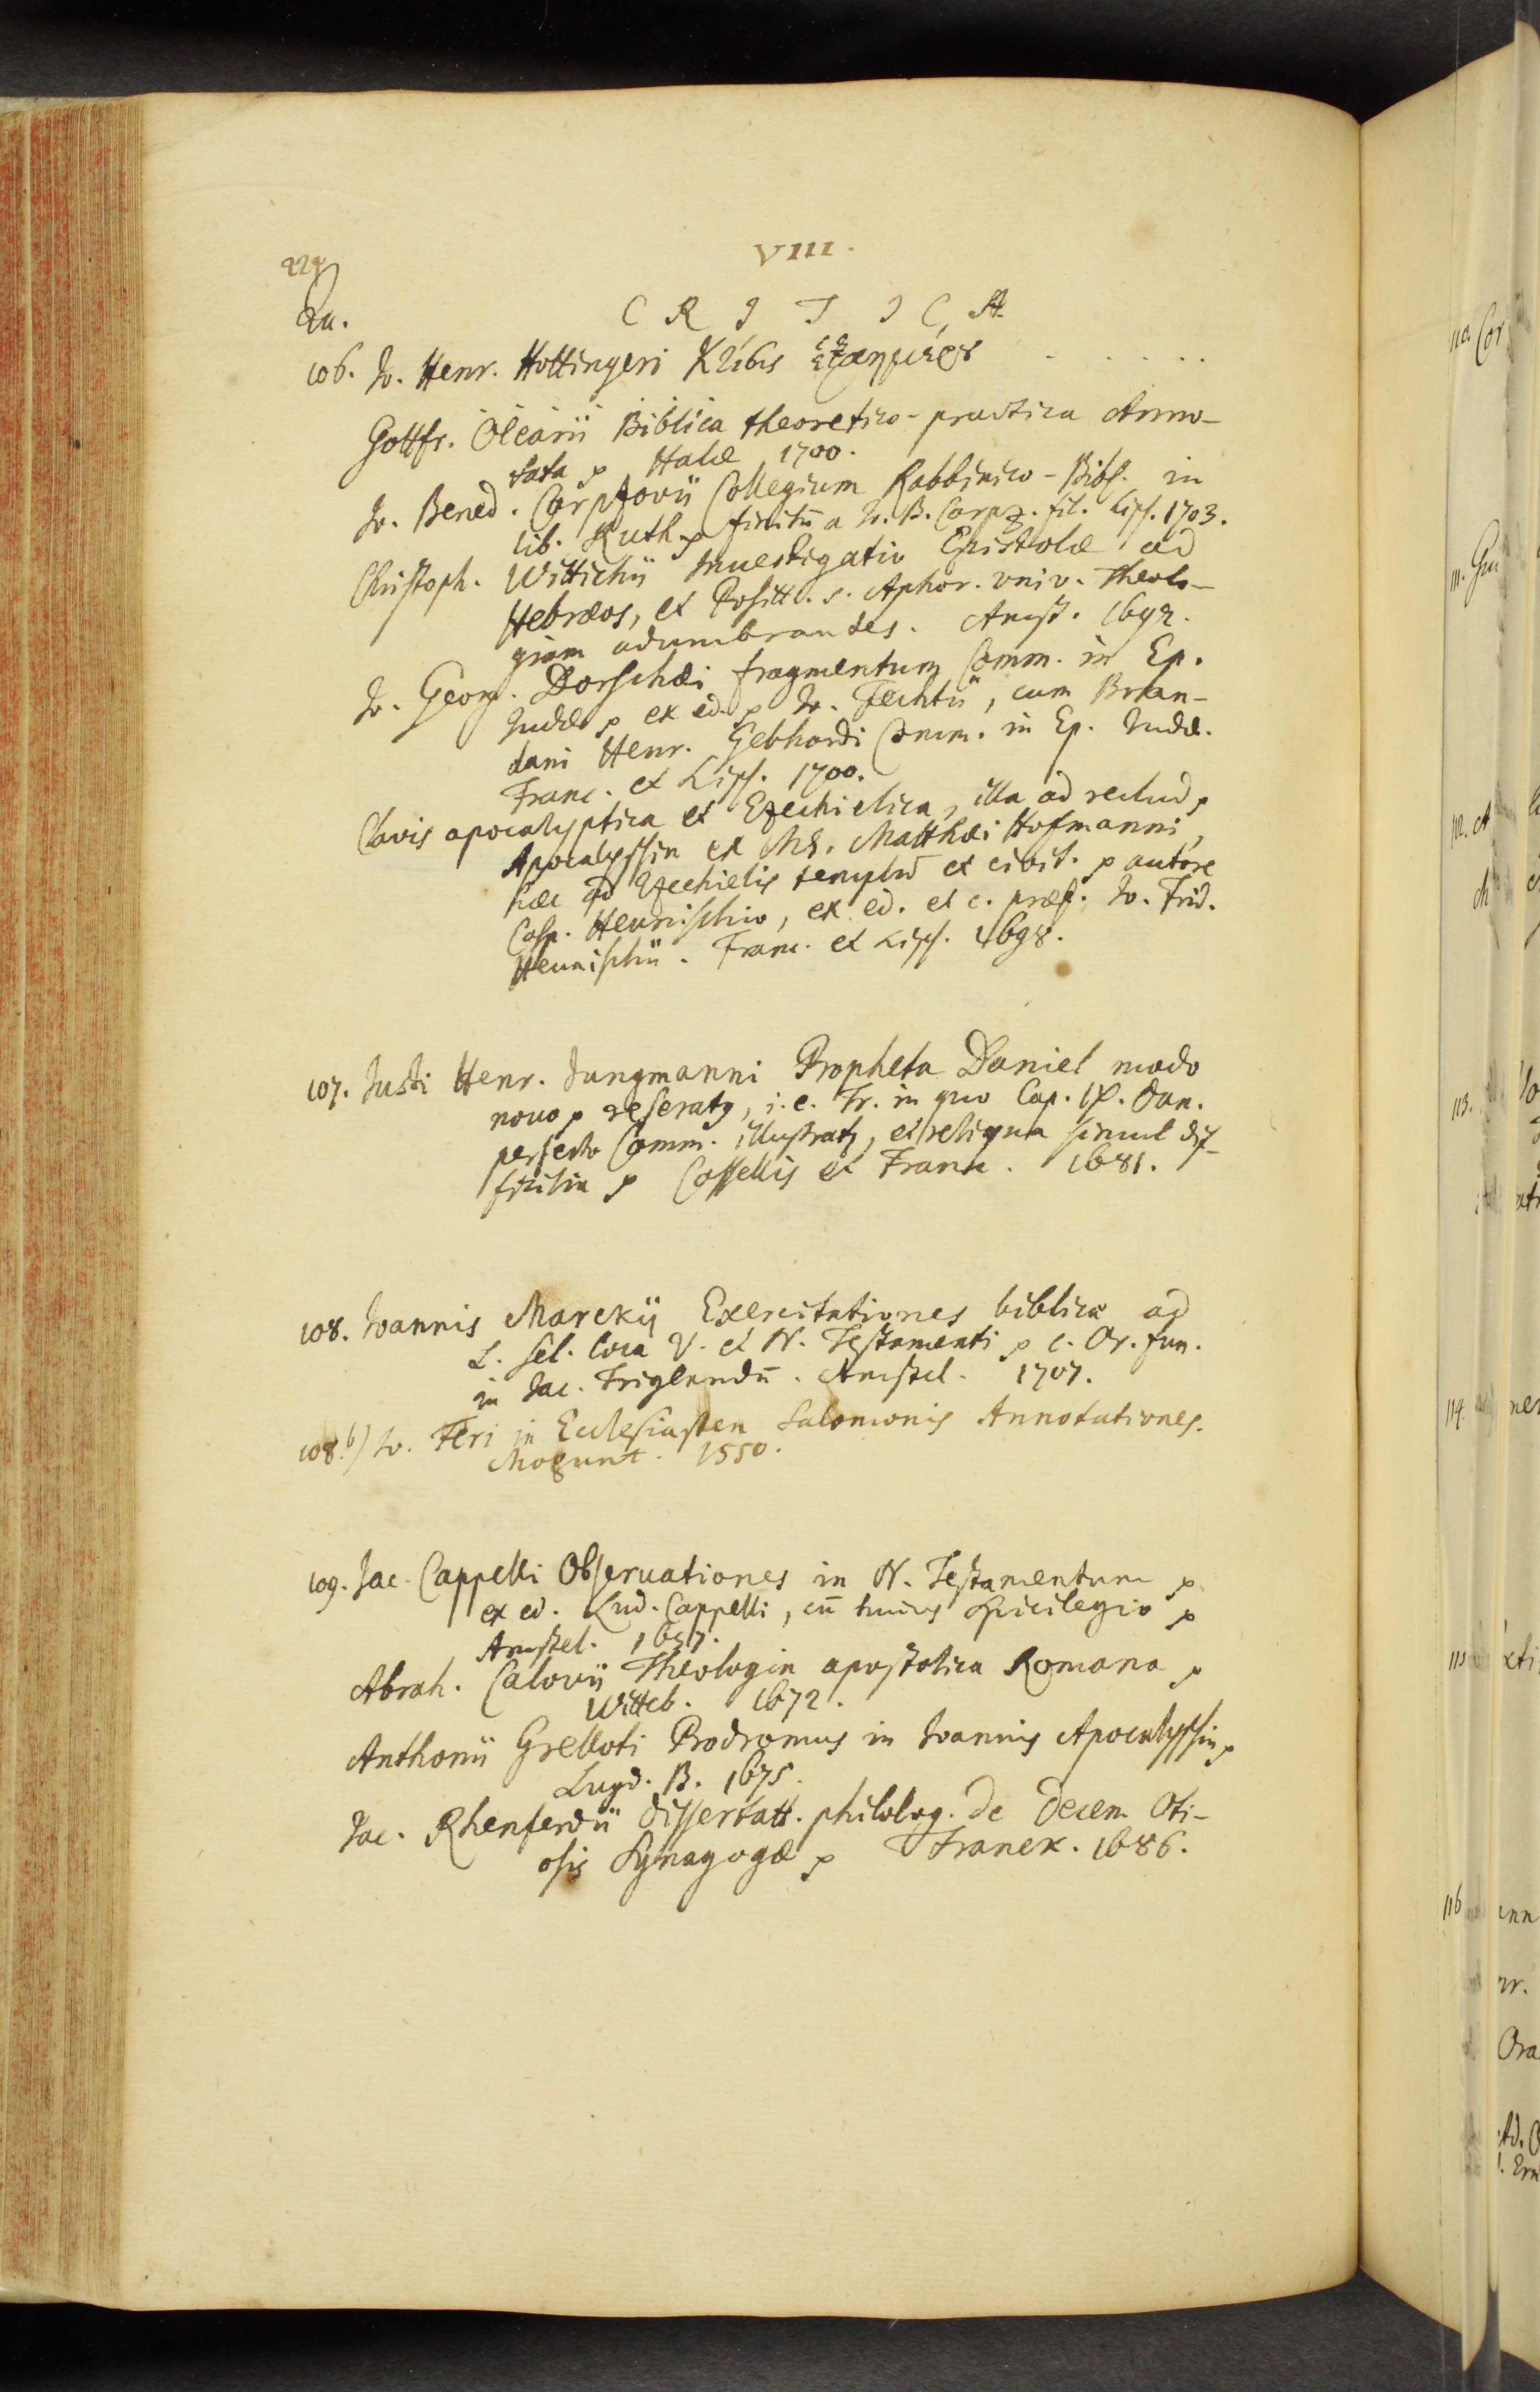 VIII.
Qu.
C R I T I C A
106. Jo. Henr. Hottingeri Κτίσις ἑξαημερος . . . . .
Gottfr. Olearii Biblica theoretico-practica Anno-
tata p Halæ 1700.
Jo. Bened. Carpzovii Collegium Rabbinico-Bibl. in
lib. Ruth p finitū a Jo. B. Carpz. fil. Lips. 1703.
Christoph. Wittichii Inuestigatio Epistolæ ad
Hebræos, et Positt. s. Aphor. vniv. Theolo-
giam adumbrantes. Amst. 1692.
Jo. Georg. Dorschæi fragmentum Comm. in Ep.
Judæ p ex ed. p Jo. Fechtii, cum Bran-
dani Henr. Gebhardi Comm. in Ep. Judæ.
Franc. et Lips. 1700.
Clavis apocalyptica et Ezechielica, illa ad reclud p
Apocalypsin ex MS. Matthæi Hofmanni,
hæc ad Ezechielis templū et civit. p autore
Casp. Heunischio, ex ed. et c. præf. Jo. Frid.
Heunischii. Franc. et Lips. 1698.
107. Justi Henr. Jungmanni Propheta Daniel modo
nouo p reseratg, i.e. Tr. in quo Cap. IX. Dan.
perfecto Comm. illustratg, et reliqua simul dif-
ficilia p Cassellis et Franc. 1681.
108. Joannis Marckii Exercitationes biblicæ ad
L. sel. loca V. et N. Testamenti p c. Or. fun.
in Jac. Triglandū. Amstel. 1707.
108.b) Jo. Feri in Ecclesiasten Salomonis Annotationes.
Mogunt. 1550.
109. Jac. Cappelli Obseruationes in N. Testamentum p
ex ed. Lud. Cappelli, cū huius Spicilegio p
Amstel. 1657.
Abrah. Calovii Theologia apostolica Romana p
Witteb. 1672.
Anthonii Grelloti Prodromus in Joannis Apocalypsin p
Lugd. B. 1675.
Jac. Rhenferdii dissertatt. philolog. de decem Oti-
osis Synagogæ p Franek. 1686.